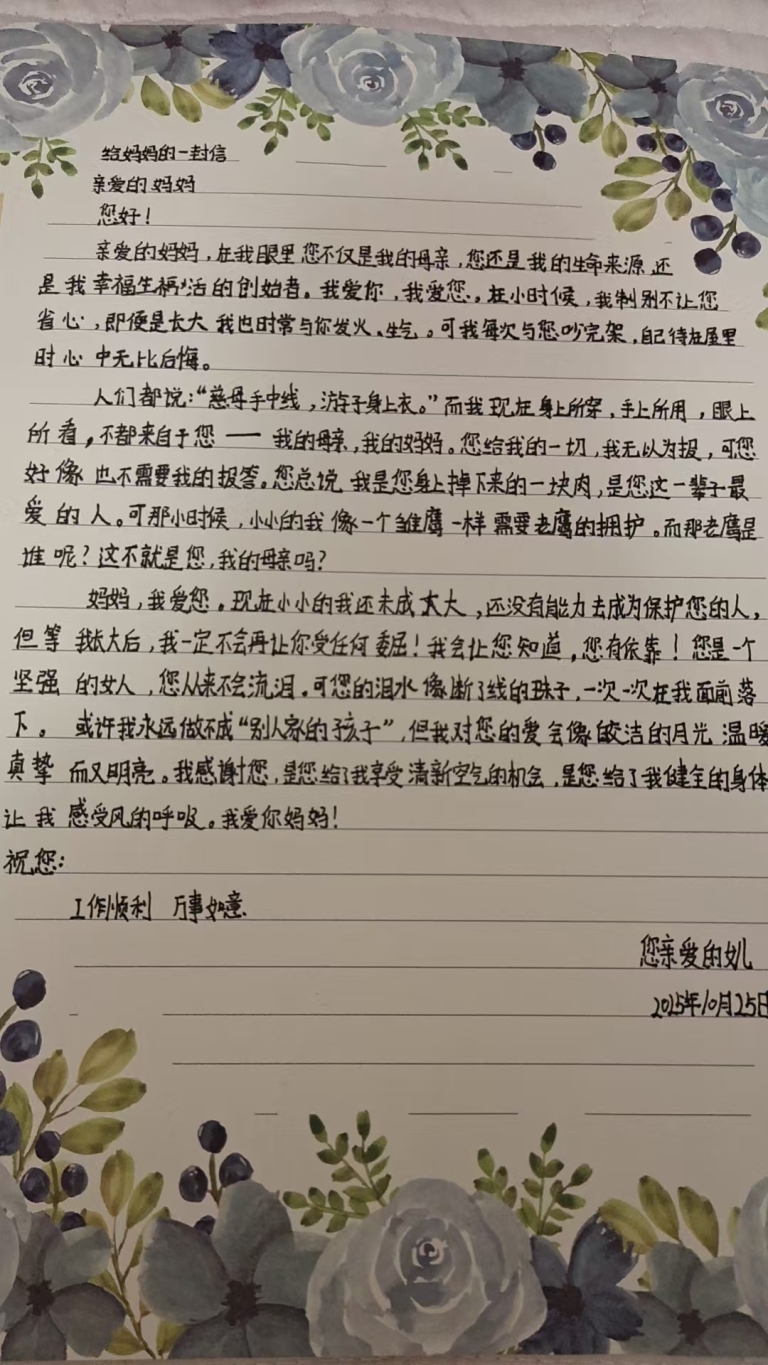 给妈妈的一封信
亲爱的妈妈
您好！
亲爱的妈妈，在我眼里您不仅是我的母亲，您还是我的生命来源还
是我幸福生活的创始者。我爱你，我爱您。在小时候，我特别不让您
省心，即便是长大我也时常与你发火、生气。可我每次与您吵完架，自己待在屋里
时心中无比后悔。
人们都说：“慈母手中线，游子身上衣。”而我现在身上所穿，手上所用，眼上
所看，不都来自于您——我的母亲，我的妈妈。您给我的一切，我无以为报，可您
好像也不需要我的报答。您总说我是您身上掉下来的一块肉，是您这一辈子最
爱的人。可那小时候，小小的我像一个雏鹰一样需要老鹰的拥护。而那老鹰是
谁呢？这不就是您，我的母亲吗？
妈妈，我爱您。现在小小的我还未成太大，还没有能力去成为保护您的人，
但等我长大后，我一定不会再让你受任何委屈！我会让您知道，您有依靠！您是一个
坚强的女人，您从来不会流泪。可您的泪水像断了线的珠子，一次一次在我面前落
下。或许我永远做不成“别人家的孩子”，但我对您的爱会像皎洁的月光温暖
真挚而又明亮。我感谢您，是您给了我享受清新空气的机会，是您给了我健全的身体
让我感受风的呼吸。我爱你妈妈！
祝您：
工作顺利 万事如意
您亲爱的女儿
2025年10月25日